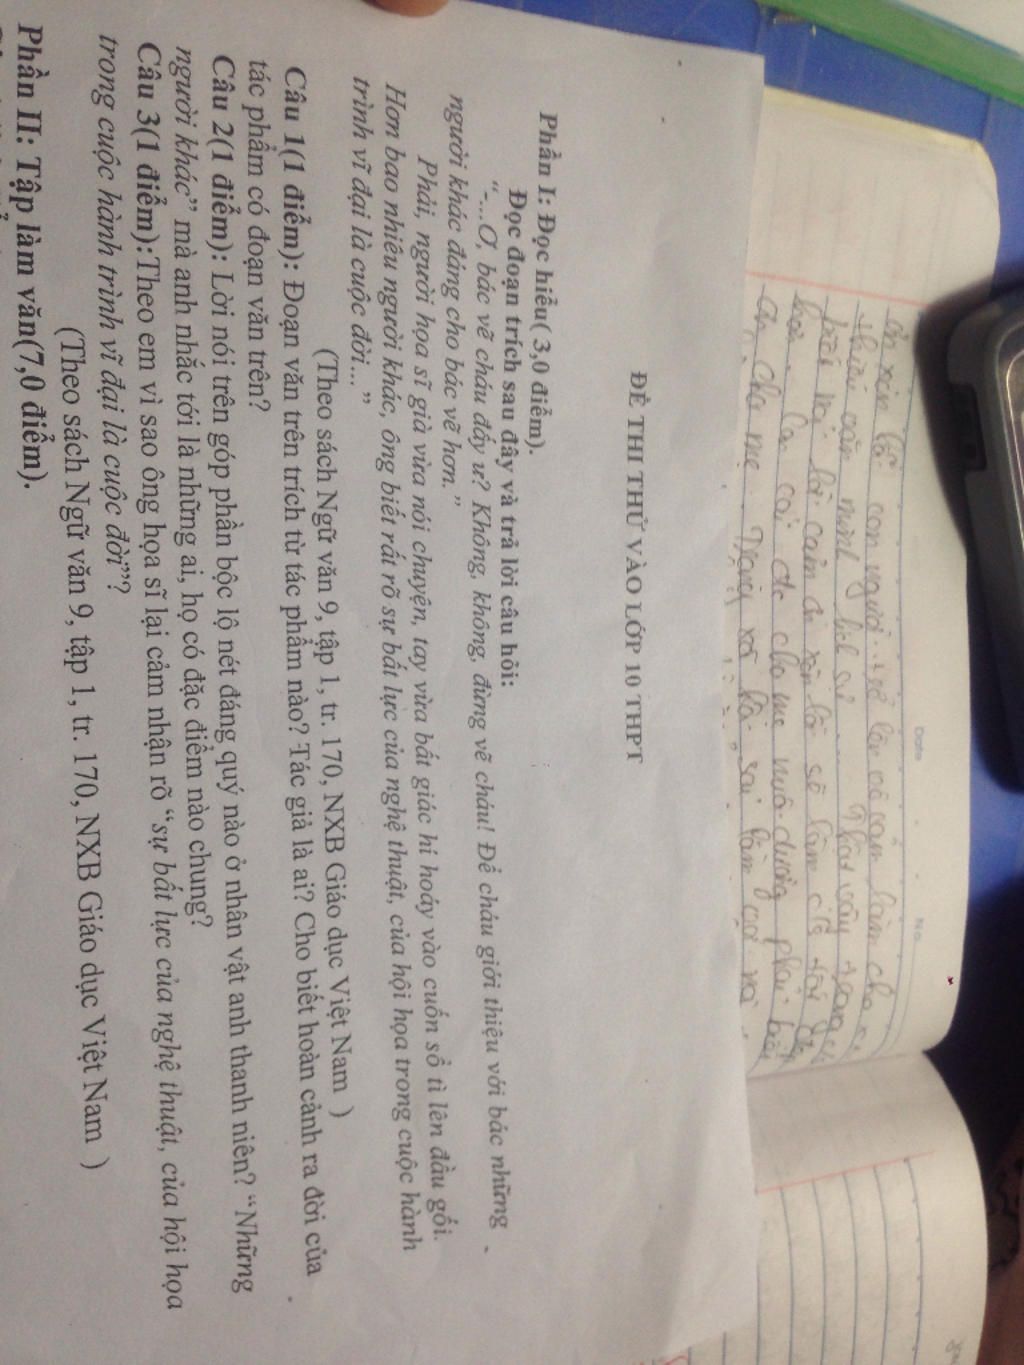 ĐỀ THI THỬ VÀO LỚP 10 THPT
Phần I: Đọc hiểu( 3,0 điểm).
Đọc đoạn trích sau đây và trả lời câu hỏi:
“-...Ơ, bác vẽ cháu đấy ư? Không, không, đừng vẽ cháu! Để cháu giới thiệu với bác những
người khác đáng cho bác vẽ hơn.”
Phải, người họa sĩ già vừa nói chuyện, tay vừa bất giác hí hoáy vào cuốn sổ tì lên đầu gối.
Hơn bao nhiêu người khác, ông biết rất rõ sự bất lực của nghệ thuật, của hội họa trong cuộc hành
trình vĩ đại là cuộc đời...”
(Theo sách Ngữ văn 9, tập 1, tr. 170, NXB Giáo dục Việt Nam )
Câu 1(1 điểm): Đoạn văn trên trích từ tác phẩm nào? Tác giả là ai? Cho biết hoàn cảnh ra đời của
tác phẩm có đoạn văn trên?
Câu 2(1 điểm): Lời nói trên góp phần bộc lộ nét đáng quý nào ở nhân vật anh thanh niên? “Những
người khác” mà anh nhắc tới là những ai, họ có đặc điểm nào chung?
Câu 3(1 điểm): Theo em vì sao ông họa sĩ lại cảm nhận rõ “sự bất lực của nghệ thuật, của hội họa
trong cuộc hành trình vĩ đại là cuộc đời”?
(Theo sách Ngữ văn 9, tập 1, tr. 170, NXB Giáo dục Việt Nam )
Phần II: Tập làm văn(7,0 điểm).
Date
No
ơn xin lỗi con người trở lên vô cảm làm cho
thiếu văn minh lịch sự
biết nói lời cảm ơn xin lỗi sẽ làm
con cái đc cha mẹ nuôi dưỡng phải biết
ơn cha mẹ xin lỗi sai lầm